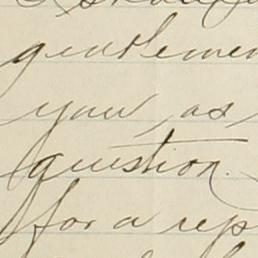 gentlemen
your, as
question.
for a rep